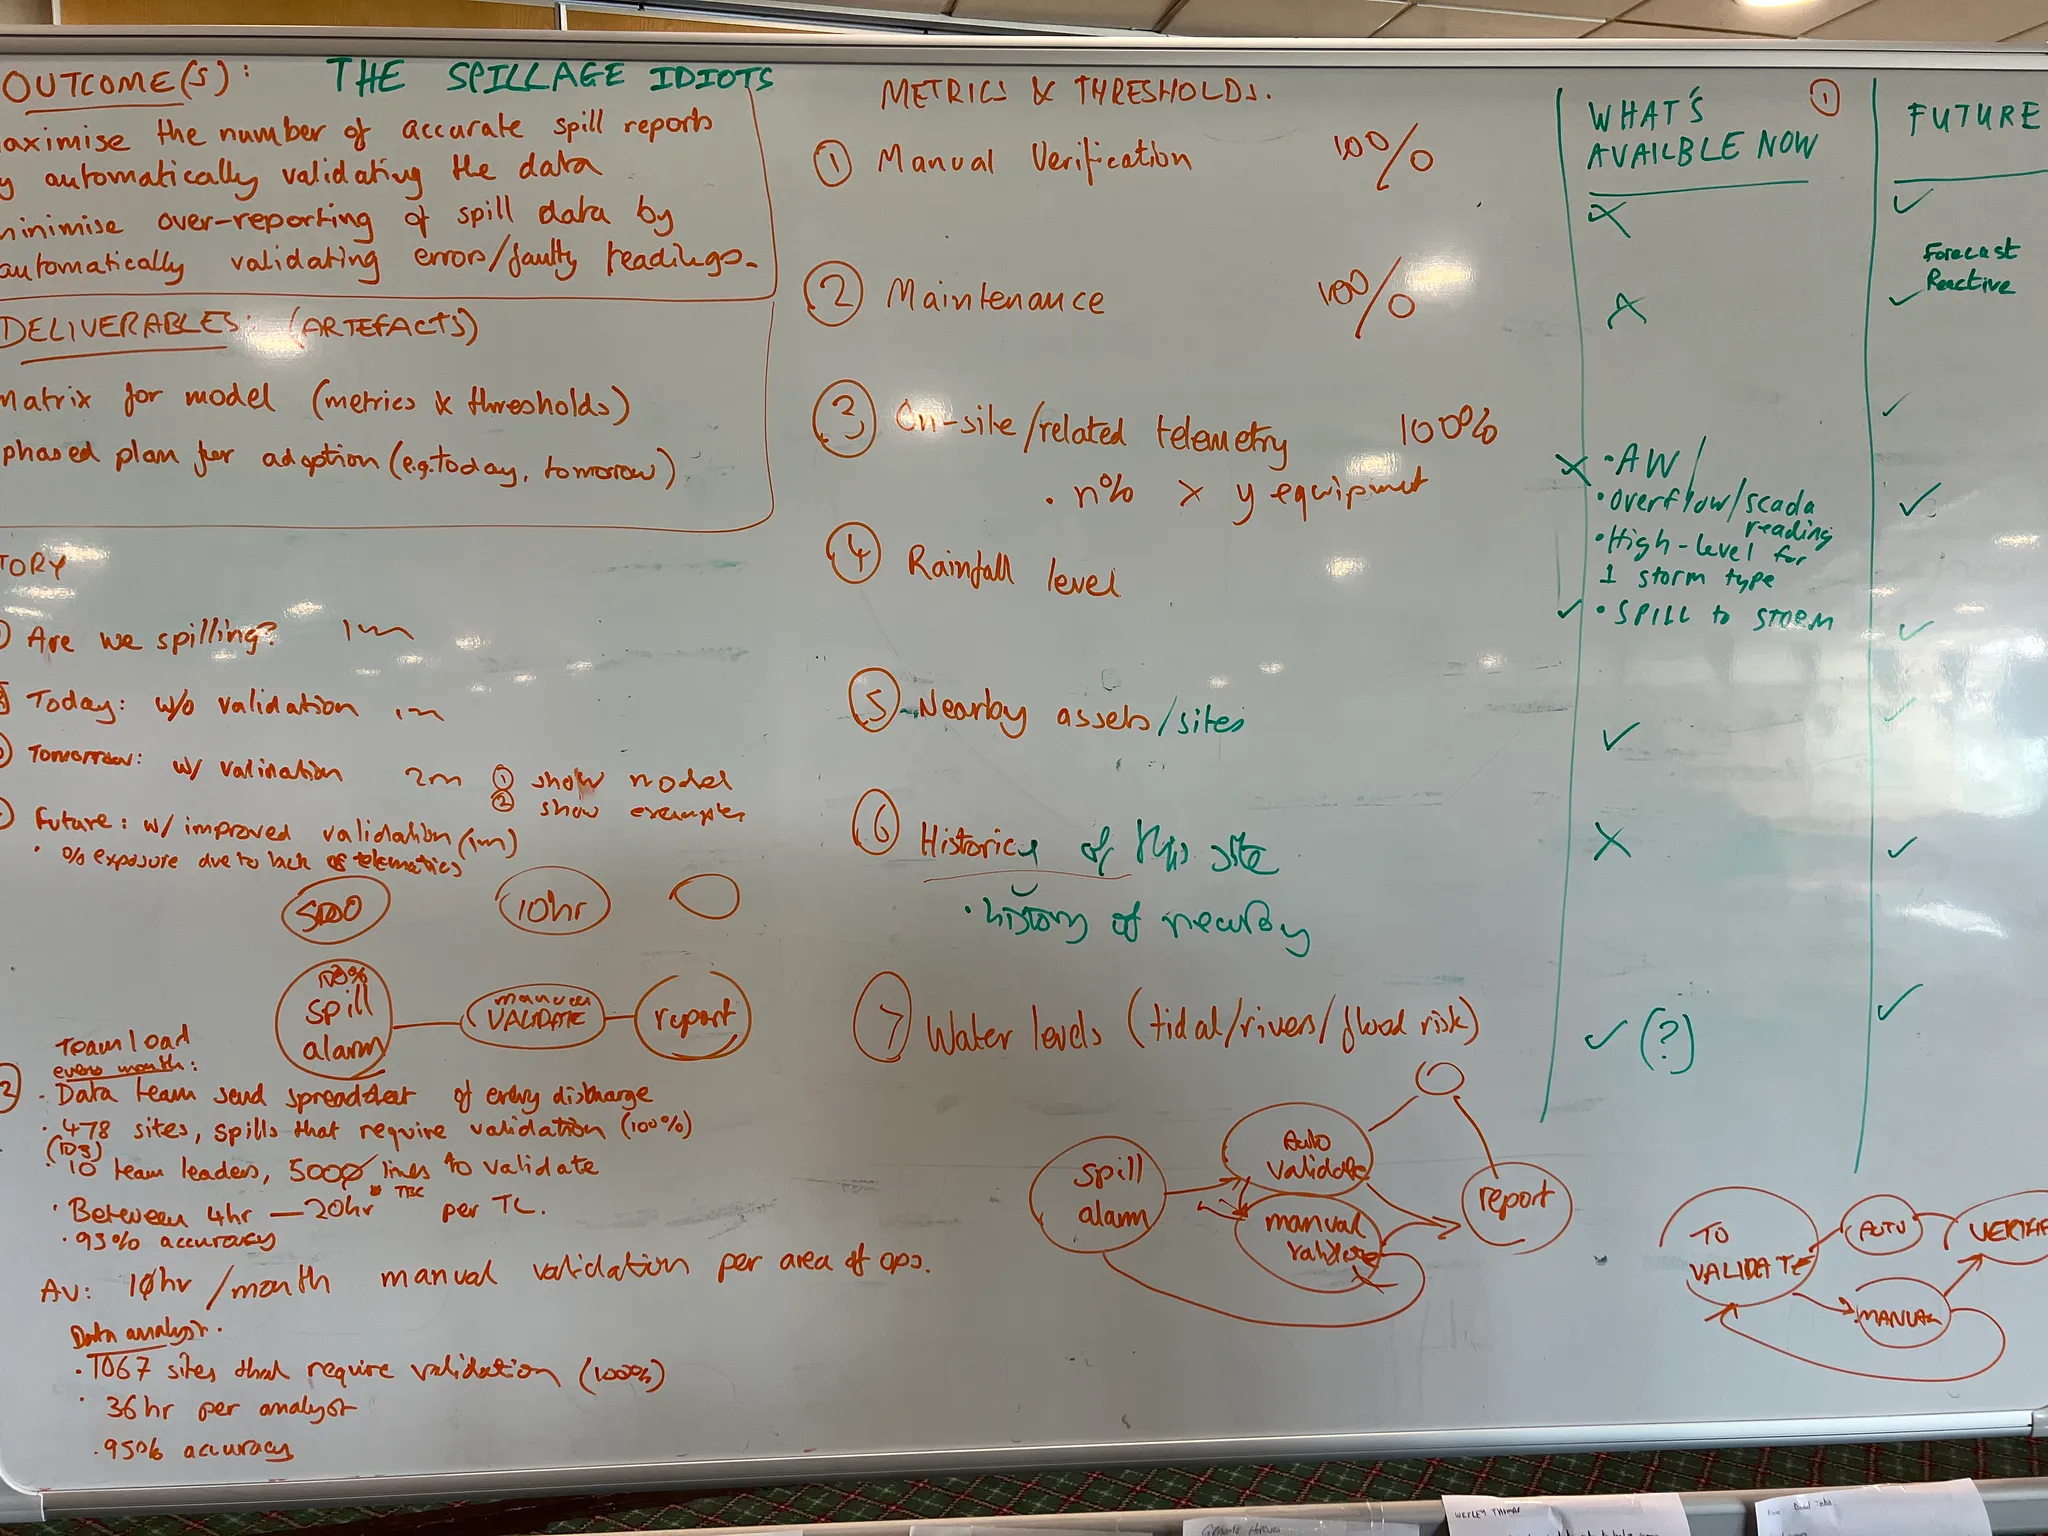 OUTCOME(S):
THE SPILLAGE IDIOTS
aximise the number of accurate spill reports
y automatically validating the data
inimise over-reporting of spill data by
automatically validating errors/faulty readings.
DELIVERABLES: (ARTEFACTS)
matrix for model (metrics & thresholds)
phased plan for adoption (e.g. today, tomorrow)
TORY
Are we spilling? 1m
Today: w/o validation 1m
Tomorrow: w/ validation 2m ① show model
② show examples
Future: w/ improved validation (1m)
• % exposure due to lack of telematics
10hr
spill
alarm
manual
VALIDATE
report
Team load
every month:
2
• Data team send spreadsheet of every discharge
• 478 sites, spills that require validation (100%)
• 10 team leaders, 5000 lines to validate
• Between 4hr — 20hr TBC per TL.
• 93% accuracy
Av: 10hr/month manual validation per area of ops.
Data analyst.
• 1067 sites that require validation (100%)
• 36hr per analyst
• 95% accuracy
METRICS & THRESHOLDS.
① Manual Verification 100%
② Maintenance 100%
③ On-site/related telemetry 100%
• n% x y equipment
④ Rainfall level
⑤ Nearby assets/sites
⑥ Historic of this site
• history of nearby
⑦ Water levels (tidal/rivers/flood risk)
spill
alarm
Auto
validate
manual
validate
report
WHAT'S ①
AVAILBLE NOW
• AW/
• Overflow/scada
reading
• High-level for
1 storm type
• SPILL to STORM
(?)
FUTURE
Forecast
Reactive
TO
VALIDATE
AUTO
MANUAL
VERIFI